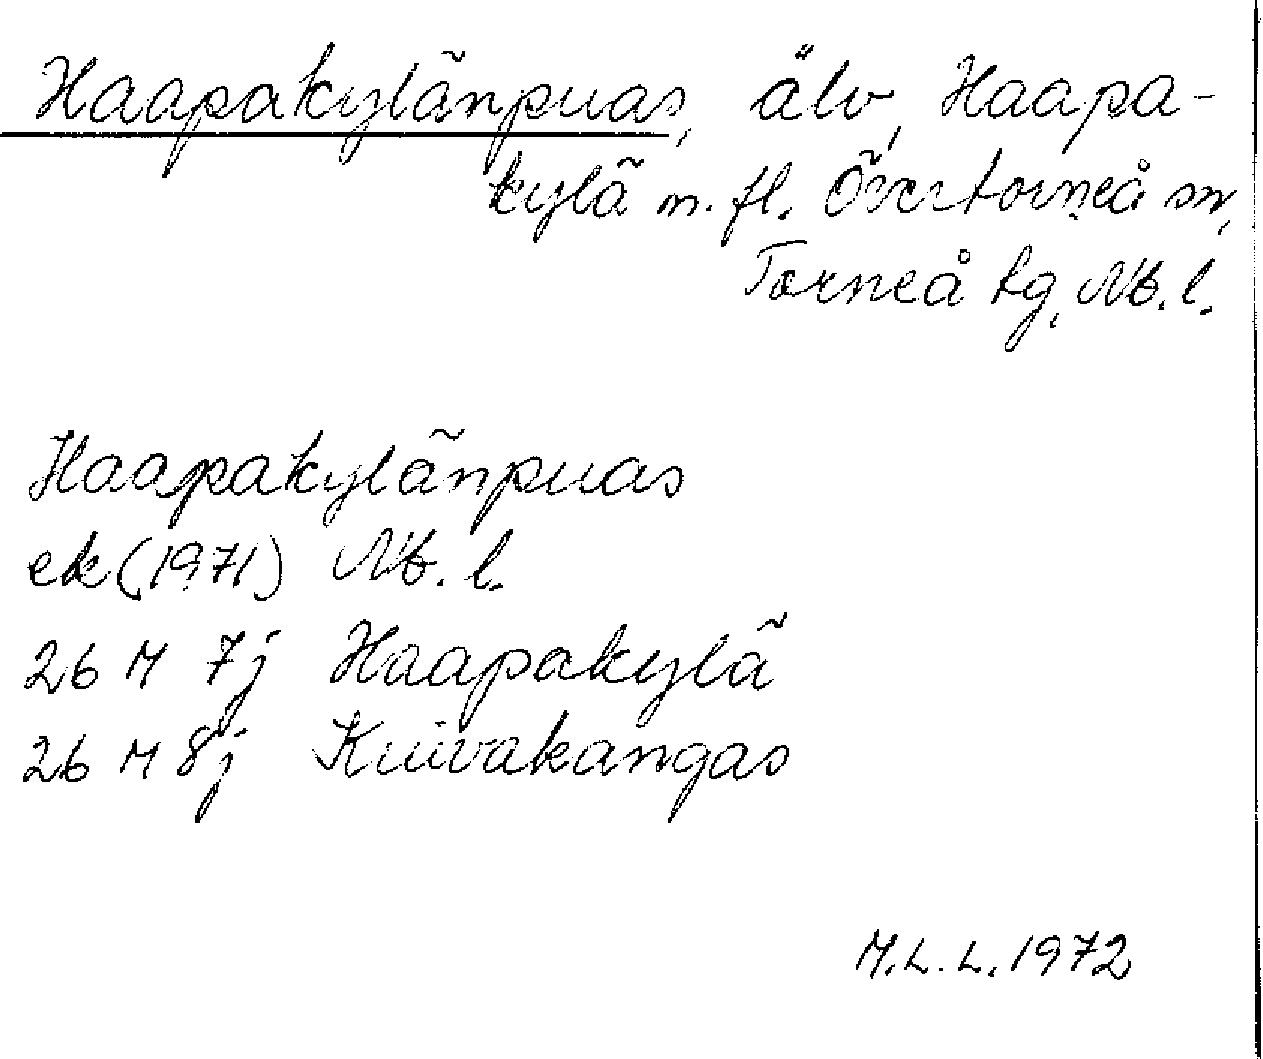 Haapakylänpuas, älv, Haapa-
kylä m.fl. Övertorneå sn,
Torneå tg, Nb. l.
Haapakylänpuas
ek (1971) Nb. l.
26 M 7j Haapakylä
26 M 8j Kuivakangas
M.L.L. 1972